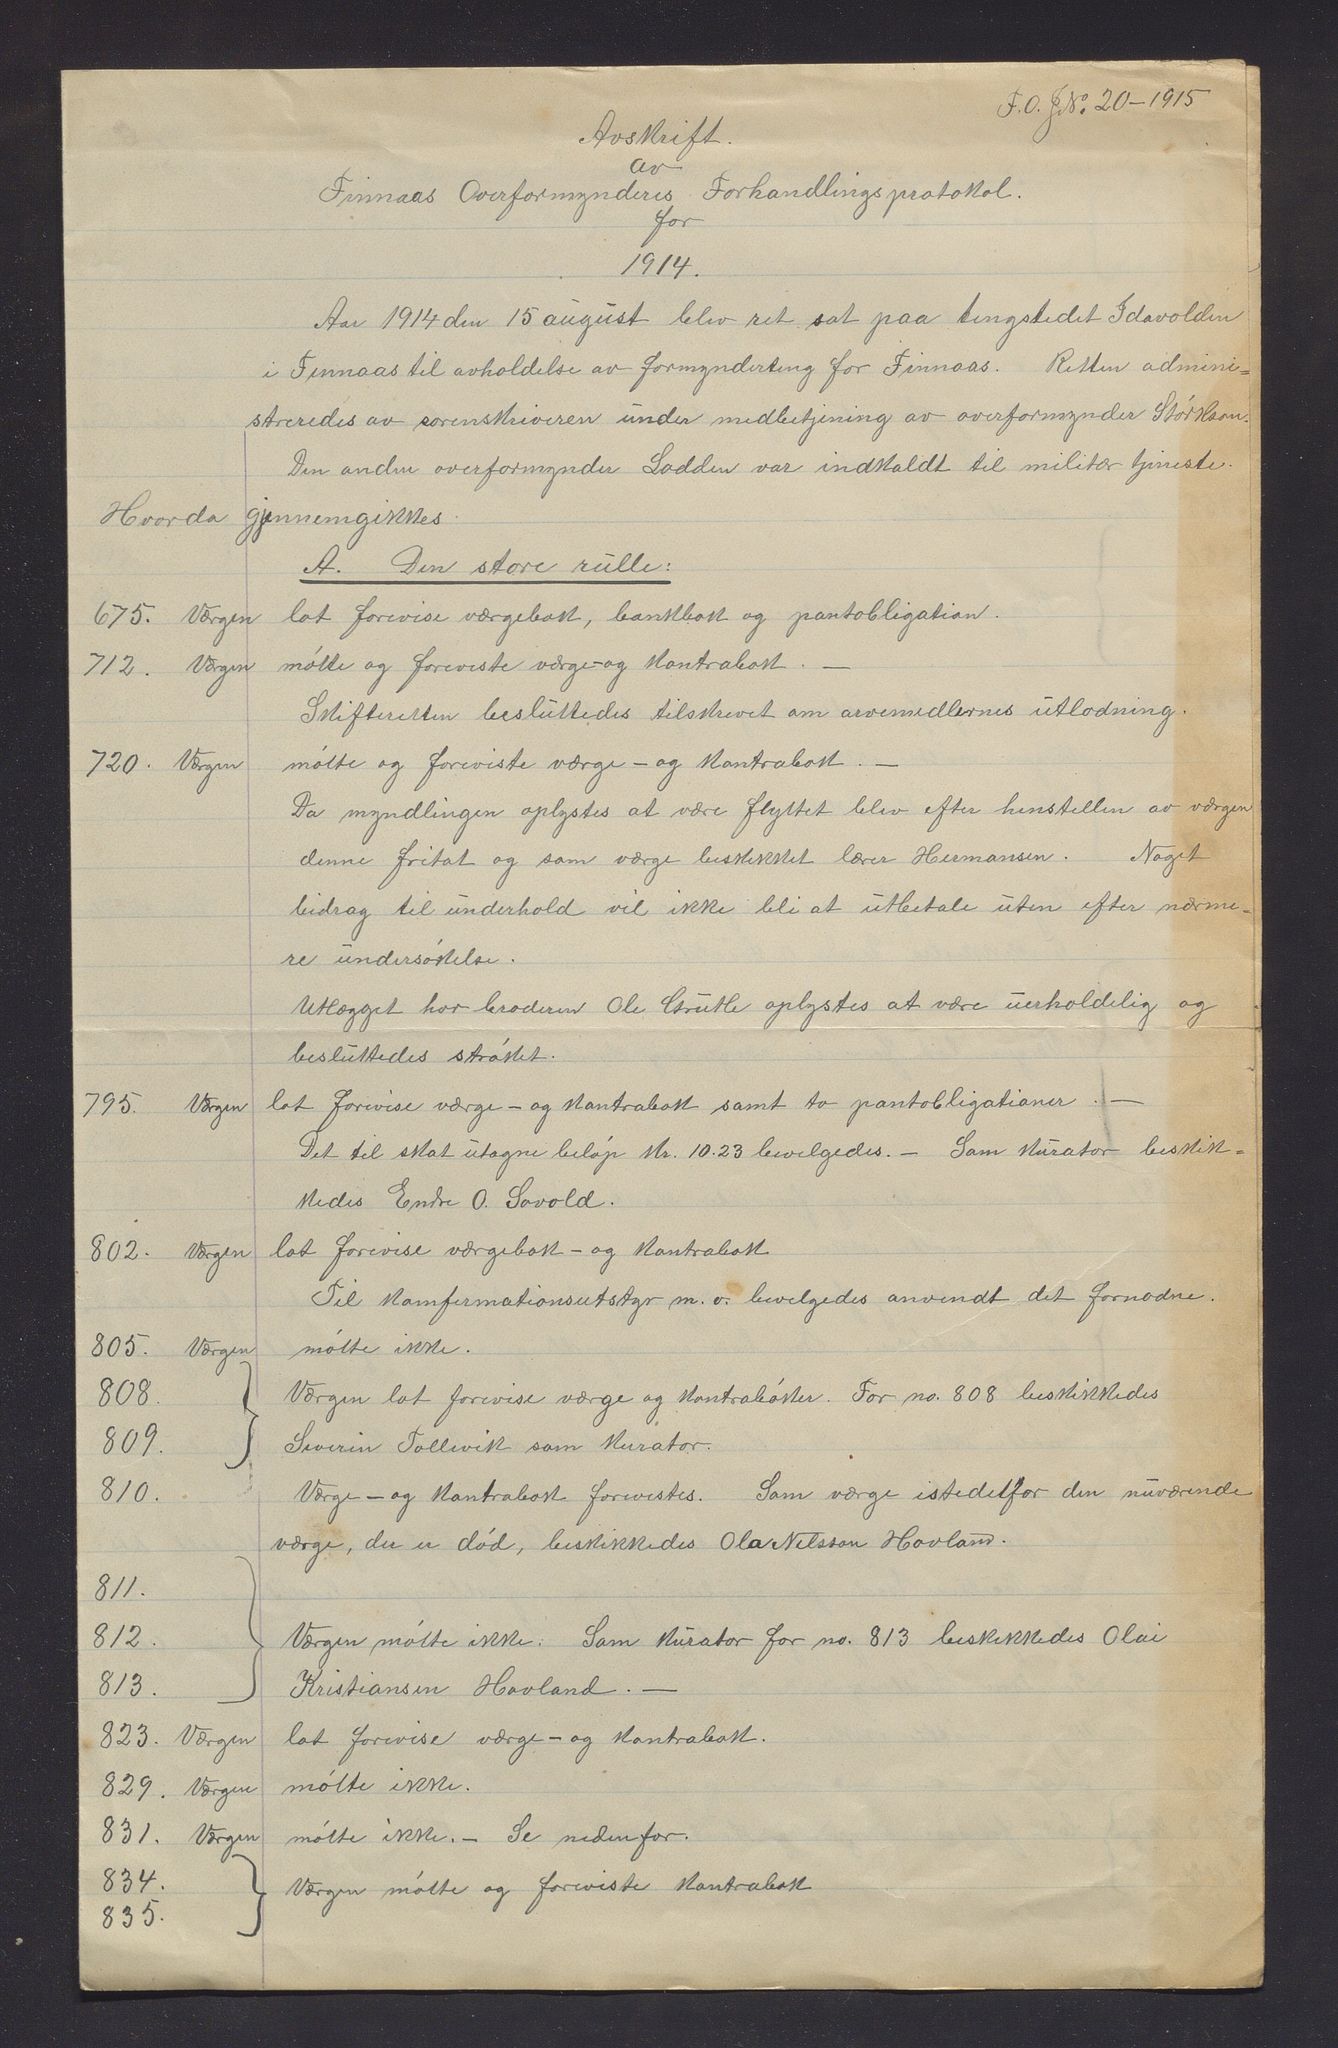 F.O. J.No. 20-1915
Avskrift.
av
Finnaas Overformynderis Forhandlingsprotokol.
for
1914.
Aar 1914 den 15 august blev ret sat paa tingstedet Idavolden
i Finnaas til avholdelse av formynderting for Finnaas. Retten admini=
streredes av sorenskriveren under medbetjening av overformynder Størkson.
Den anden overformynder Lodden var indkaldt til militær tjeneste.
Hvorda gjennemgikkes
A. Den store rulle:
675. Værgen lot forevise værgebok, bankbok og pantobligation.
712. Værgen møtte og foreviste værge- og kontrabok. —
Skifteretten besluttedes tilskrevet om arvemidlernes utlodning.
720. Værgen møtte og foreviste værge - og kontrabok. —
Da myndlingen oplystes at være flyttet blev efter henstillen av værgen
denne fritat og som værge beskikket lærer Hermansen. Noget
bidrag til underhold vil ikke bli at utbetale uten efter nærme-
re undersøkelse.
Utlægget hos broderen Ole Grutle oplystes at være uerholdelig og
besluttedes strøket.
795. Værgen lot forevise værge - og kontrabok samt to pantobligationer. —
Det til skat utagne beløp kr. 10.23 bevilgedes. — Som kurator beskik=
kedes Endre O. Søvold.
802. Værgen lot forevise værgebok - og kontrabok
Til konfirmationsutstyr m. v. bevilgedes anvendt det fornødne.
805. Værgen møtte ikke.
808. Værgen lot forevise værge og kontrabøker. For no. 808 beskikkedes
809. Severin Tollevik som kurator.
810. Værge - og kontrabok forevistes. Som værge istedetfor den nuværende
værge, der er død, beskikkedes Ola Nilsson Hovland.
811.
812. Værgen møtte ikke. Som kurator for no. 813 beskikkedes Olai
813. Kristiansen Hovland. —
823. Værgen lot forevise værge - og kontrabok.
829. Værgen møtte ikke.
831. Værgen møtte ikke. — Se nedenfor.
834. Værgen møtte og foreviste kontrabok
835.